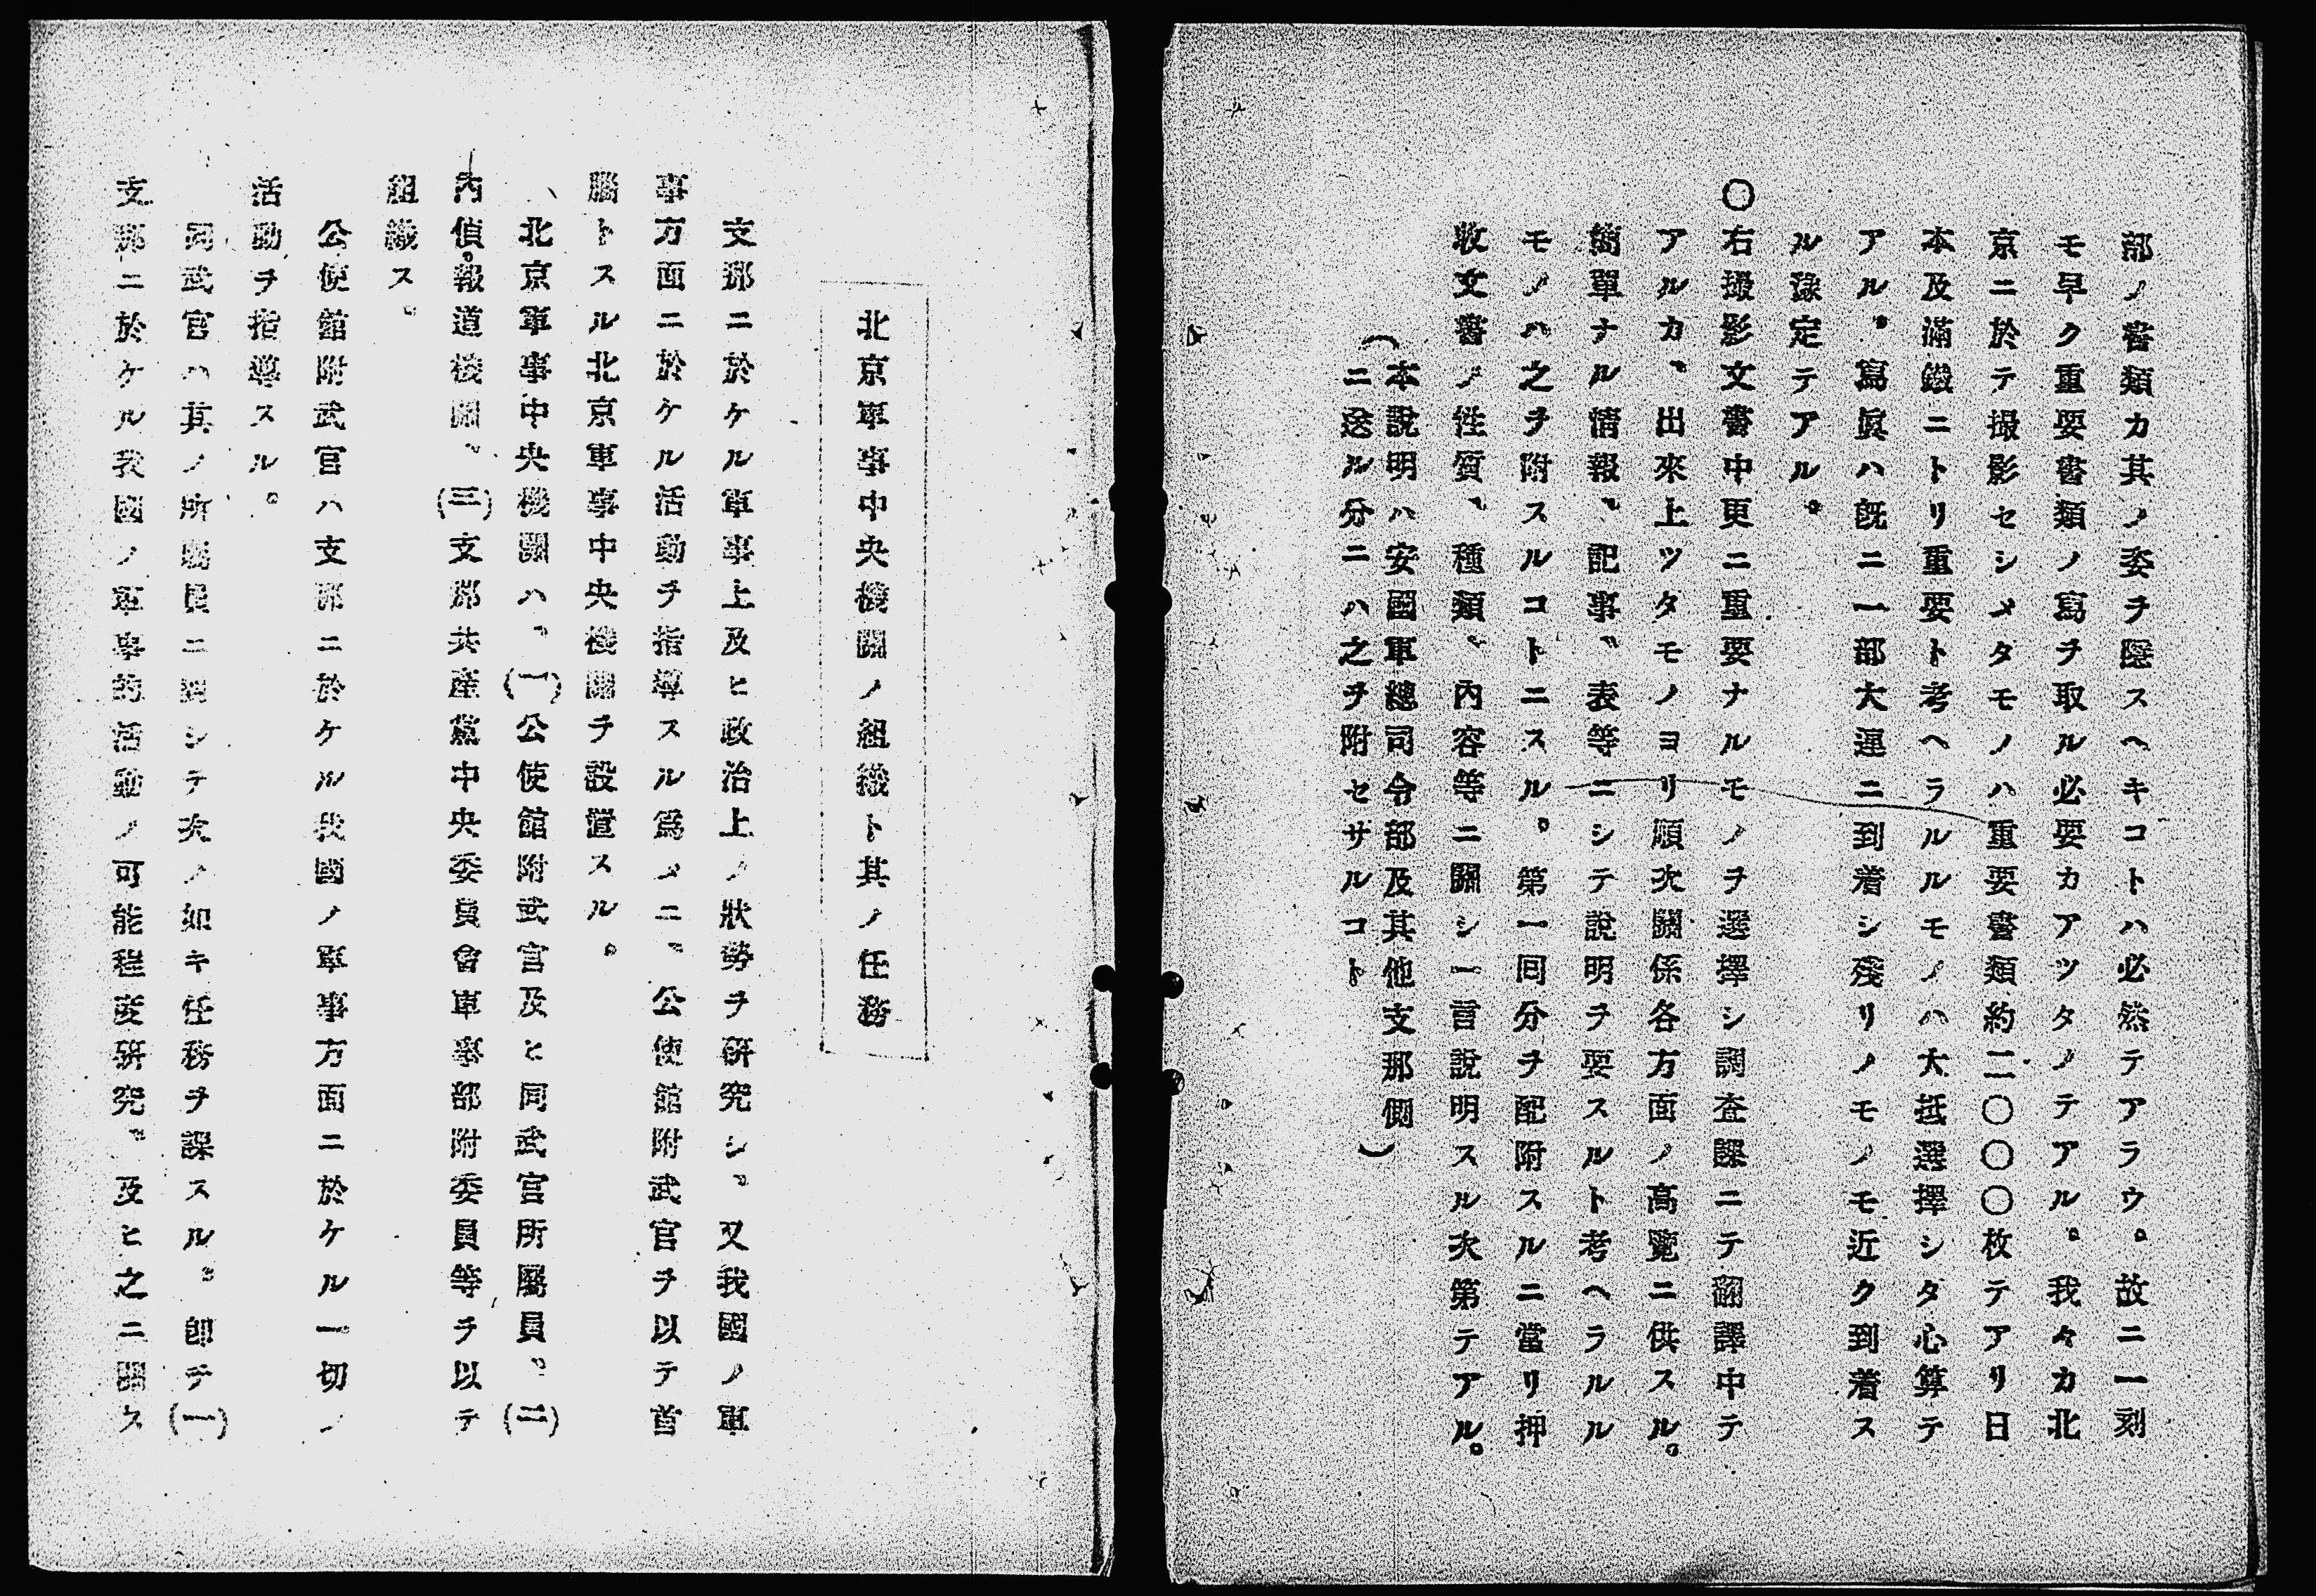 部ノ書類カ其ノ委ヲ隱スヘキコトハ必然テアラウ。故ニ一刻
モ早ク重要書類ノ寫ヲ取ル必要カアツタノテアル。我々カ北
京ニ於テ撮影セシメタモノハ重要書類約二〇〇〇枚テアリ日
本及滿鐵ニトリ重要ト考ヘラルルモノハ大抵選擇シタ心算テ
アル。寫眞ハ既ニ一部大連ニ到着シ殘リノモノモ近ク到着ス
ル豫定テアル。
〇右撮影文書中更ニ重要ナルモノヲ選擇シ調査課ニテ翻譯中テ
アルカ、出來上ツタモノヨリ順次關係各方面ノ高覽ニ供スル。
簡單ナル情報、記事、表等ニシテ說明ヲ要スルト考ヘラルル
モノハ之ヲ附スルコトニスル。第一回分ヲ配附スルニ當リ押
收文書ノ性質、種類、內容等ニ關シ一言說明スル次第テアル。
(本說明ハ安國軍總司令部及其他支那側)
ニ送ル分ニハ之ヲ附セサルコト
北京軍事中央機關ノ組織ト其ノ任務
支那ニ於ケル軍事上及ヒ政治上ノ狀勢ヲ硏究シ、又我國ノ軍
事方面ニ於ケル活動ヲ指導スル爲メニ、公使館附武官ヲ以テ首
腦トスル北京軍事中央機關ヲ設置スル。
北京軍事中央機關ハ、(一)公使館附武官及ヒ同武官所屬員、(二)
內偵報道機關、(三)支那共產黨中央委員會軍事部附委員等ヲ以テ
組織ス。
公使館附武官ハ支那ニ於ケル我國ノ軍事方面ニ於ケル一切ノ
活動ヲ指導スル。
同武官ハ其ノ所屬員ニ對シテ次ノ如キ任務ヲ課スル。卽テ(一)
支那ニ於ケル我國ノ軍事的活動ノ可能程度硏究、及ヒ之ニ關ス